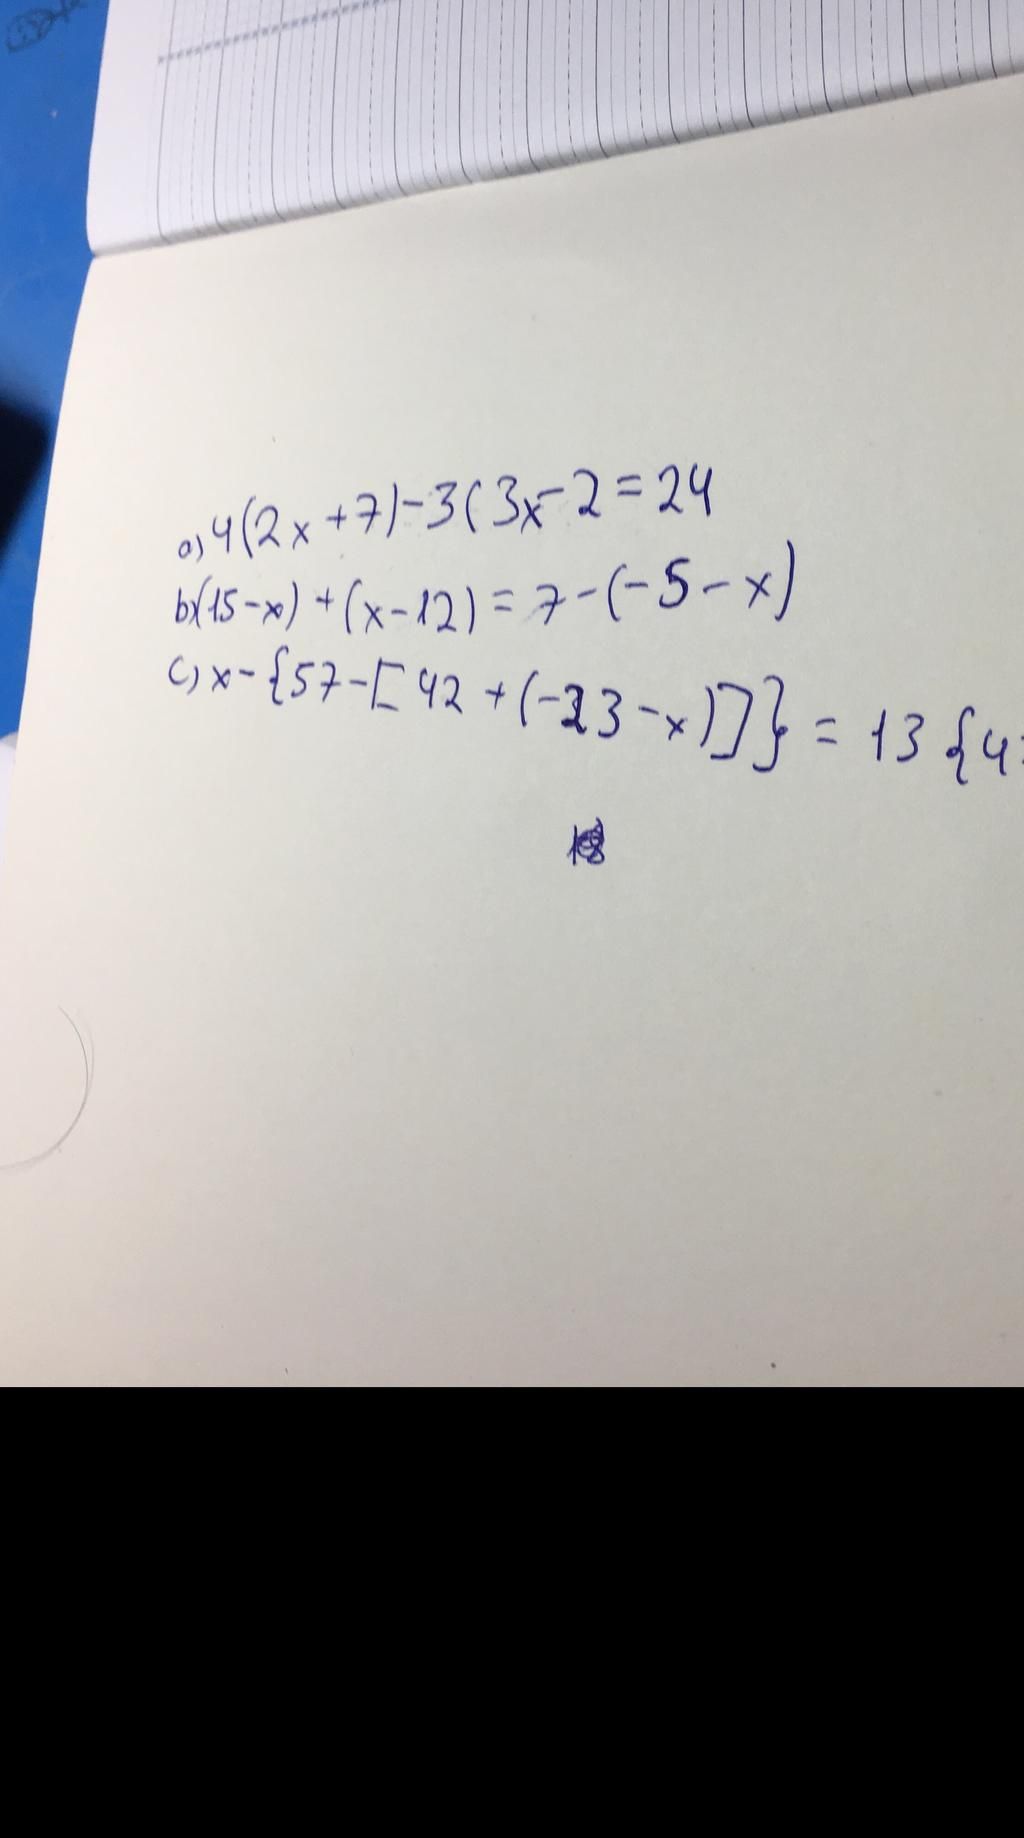 a) 4(2x+7)-3(3x-2=24
b)(15-x)+(x-12)=7-(-5-x)
c) x-{57-[42+(-23-x)]}=13{4